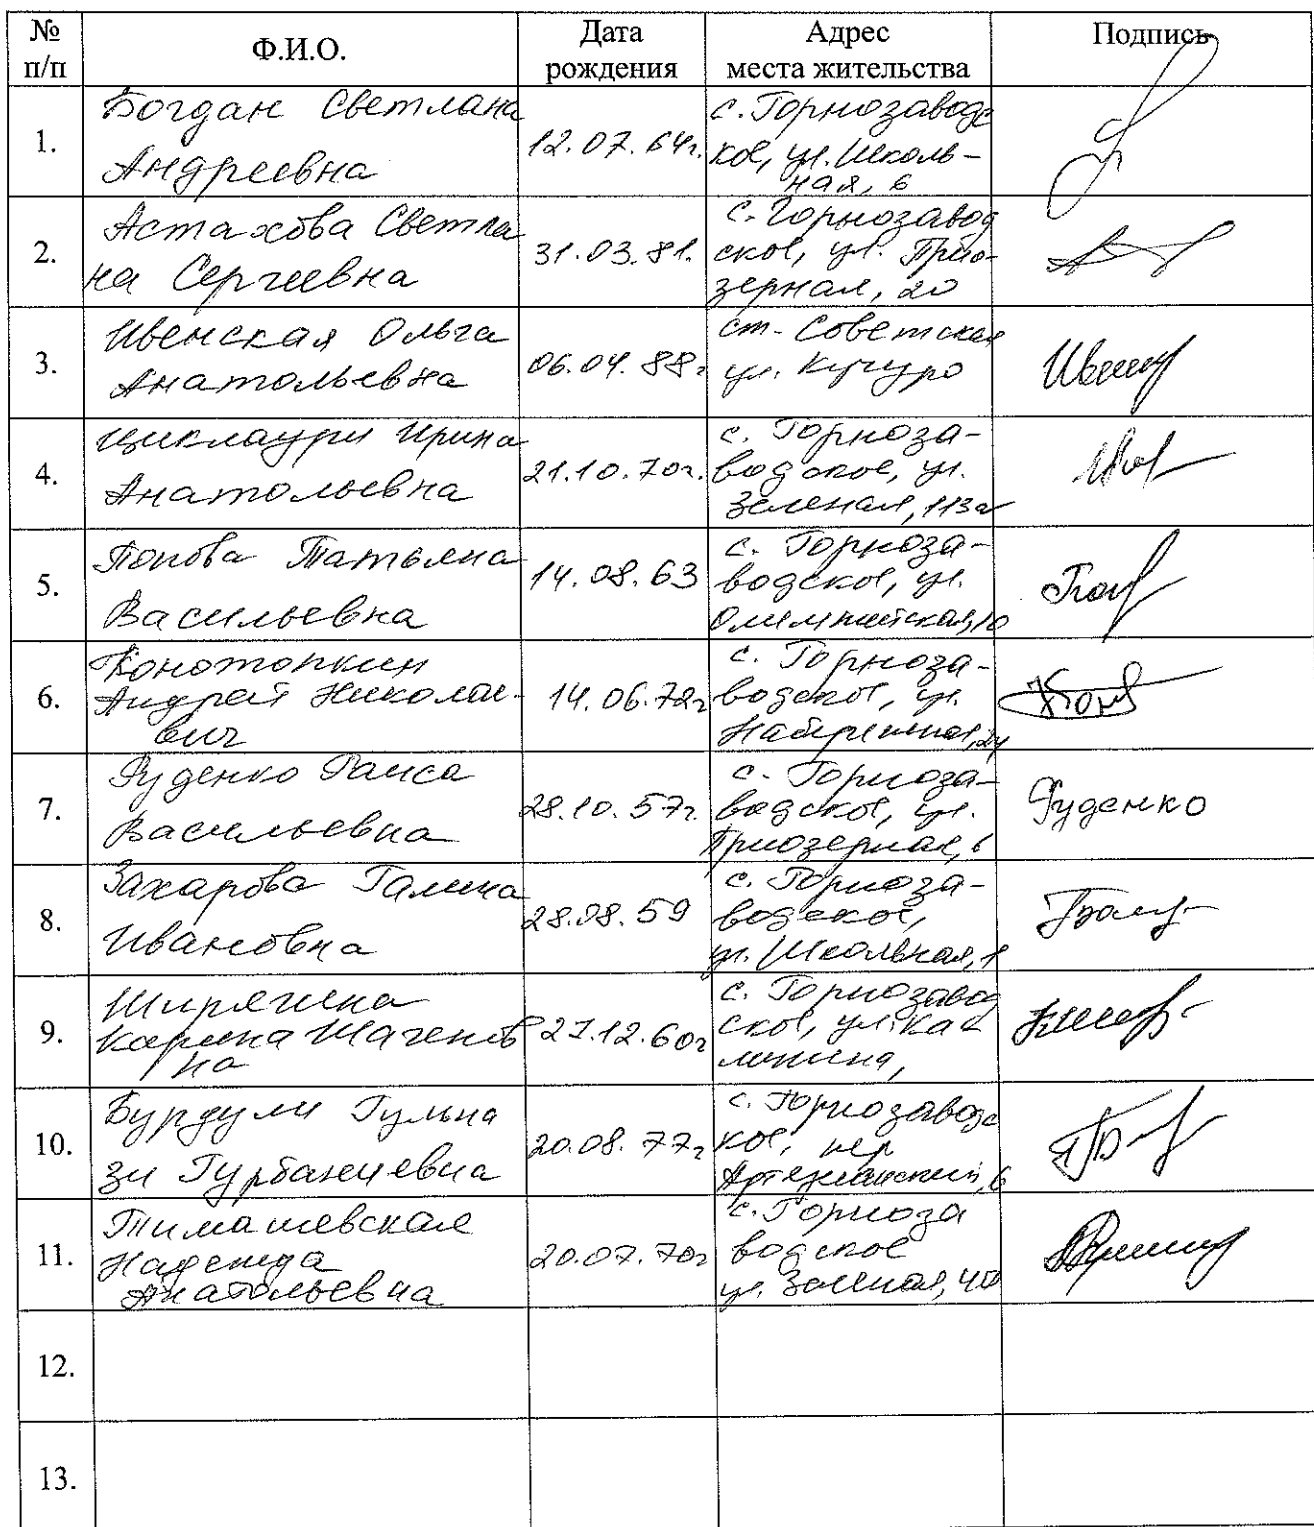 № п/п Ф.И.О. Дата рождения Адрес места жительства Подпись
1. Богдан Светлана
Андреевна
12.07.64г.
с. Горнозаводс
кое, ул. Школь-
ная, 6
2. Астахова Светла
на Сергеевна
31.03.81.
с. Горнозавод
ское, ул. Прио-
зерная, 20
3. Ивенская Ольга
Анатольевна
06.04.88г
ст. Советская
ул. Кучуро
4. Циклаури Ирина
Анатольевна
21.10.70г.
с. Горноза-
водское, ул.
Зеленая, 113а
5. Попова Татьяна
Васильевна
14.08.63
с. Горноза-
водское, ул.
Олимпийская, 10
6. Конотопкин
Андрей Николае-
вич
14.06.72г
с. Горноза-
водское, ул.
Набережная, 24
7. Руденко Раиса
Васильевна
28.10.57г.
с. Горноза-
водское, ул.
Приозерная, 6
Руденко
8. Захарова Галина
Ивановна
28.08.59
с. Горноза-
водское,
ул. Школьная, 1
9. Ширягина
Карина Шагенов
на
27.12.60г
с. Горнозавод
ское, ул. Ка
линина,
10. Бурдули Гульна
зи Гурбаниевна
20.08.77г
с. Горнозаводс
кое, пер
Артезианский, 6
11. Тимашевская
Надежда
Анатольевна
20.07.70г
с. Горноза
водское
ул. Зеленая,
12.
13.